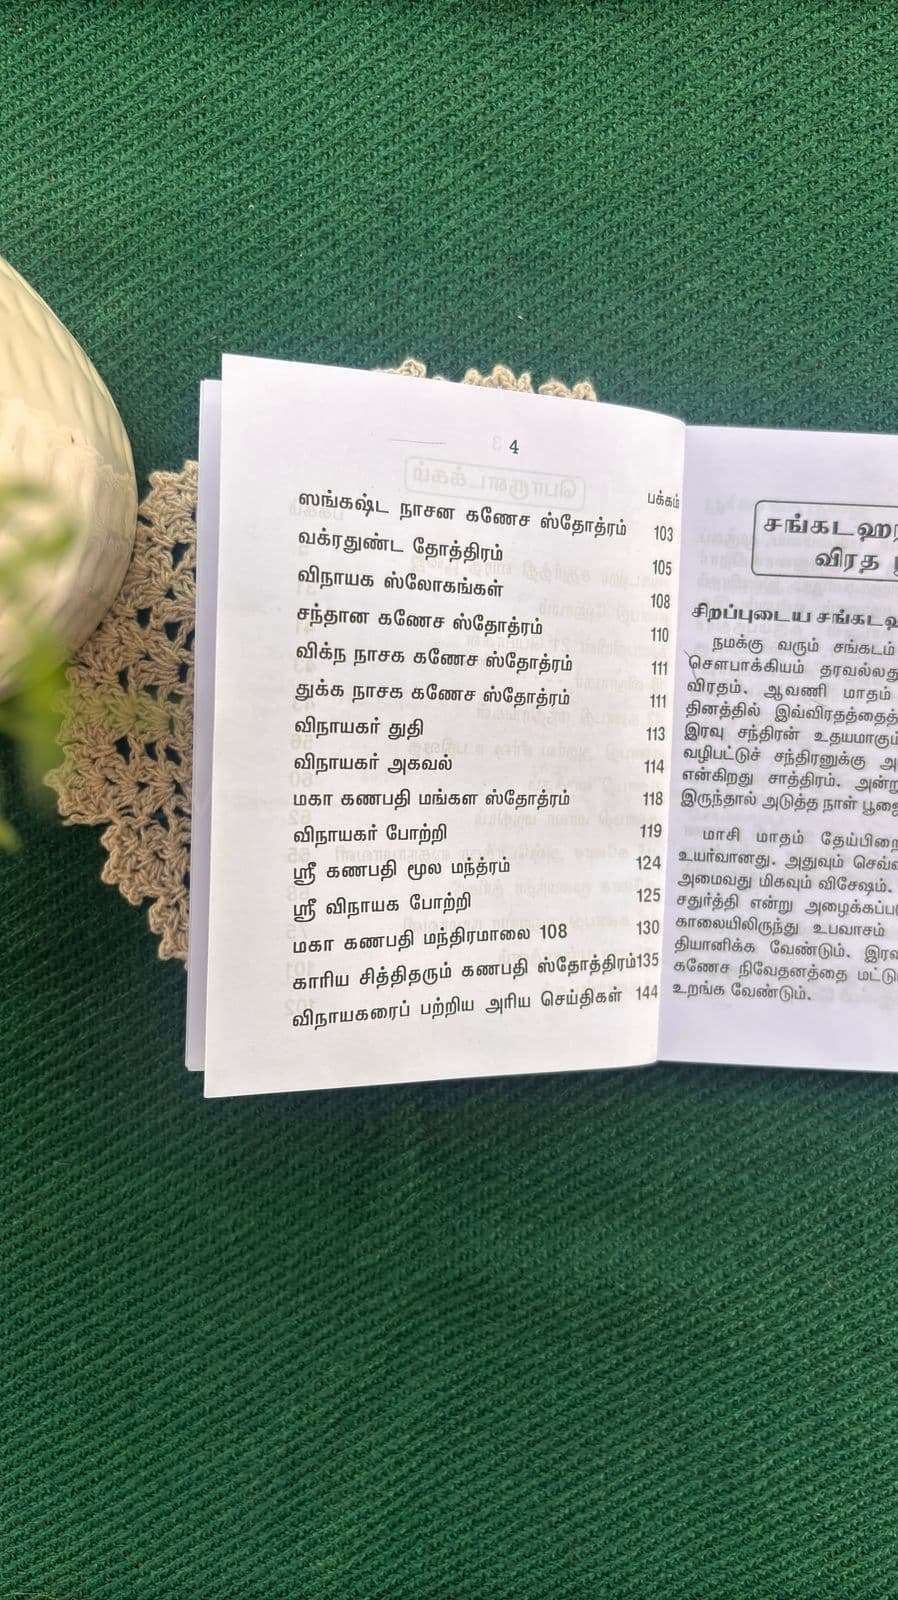 4
பக்கம்
ஸங்கஷ்ட நாசன கணேச ஸ்தோத்ரம் 103
வக்ரதுண்ட தோத்திரம் 105
விநாயக ஸ்லோகங்கள் 108
சந்தான கணேச ஸ்தோத்ரம் 110
விக்ந நாசக கணேச ஸ்தோத்ரம் 111
துக்க நாசக கணேச ஸ்தோத்ரம் 111
விநாயகர் துதி 113
விநாயகர் அகவல் 114
மகா கணபதி மங்கள ஸ்தோத்ரம் 118
விநாயகர் போற்றி 119
ஸ்ரீ கணபதி மூல மந்த்ரம் 124
ஸ்ரீ விநாயக போற்றி 125
மகா கணபதி மந்திரமாலை 108 130
காரிய சித்திதரும் கணபதி ஸ்தோத்திரம்135
விநாயகரைப் பற்றிய அரிய செய்திகள் 144
சங்கடஹர
விரத
சிறப்புடைய சங்கட
நமக்கு வரும் சங்கடம்
சௌபாக்கியம் தரவல்லது
விரதம். ஆவணி மாதம்
தினத்தில் இவ்விரதத்தைத்
இரவு சந்திரன் உதயமாகும்
வழிபட்டுச் சந்திரனுக்கு
என்கிறது சாத்திரம். அன்று
இருந்தால் அடுத்த நாள் பூஜை
மாசி மாதம் தேய்பிறை
உயர்வானது. அதுவும் செவ்
அமைவது மிகவும் விசேஷம்.
சதுர்த்தி என்று அழைக்கப்ப
காலையிலிருந்து உபவாசம்
தியானிக்க வேண்டும். இரவ
கணேச நிவேதனத்தை மட்டு
உறங்க வேண்டும்.